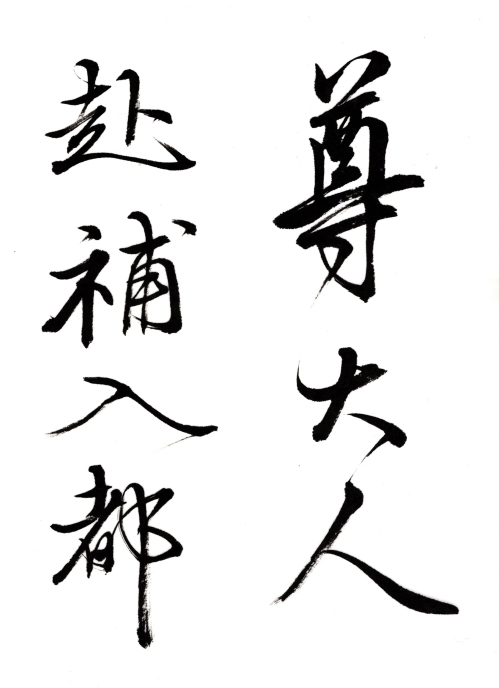 尊大人
赴補入都